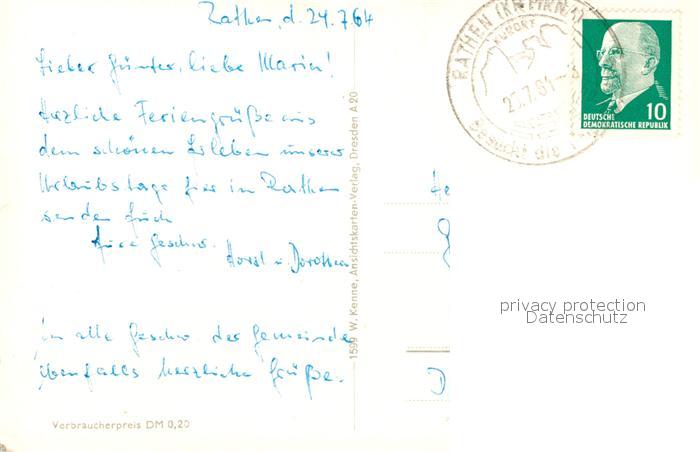 Rathen, d. 24.7.64
Lieber Günter, liebe Maria!
Herzliche Feriengrüße aus
dem schönen Erleben unserer
Urlaubstage hier in Rathen
senden Euch
Eure Geschw.
Horst u. Dorothea
An alle Geschw. der Gemeinde
ebenfalls herzliche Grüße.
Verbraucherpreis DM 0,20
1599 W. Kenne, Ansichtskarten-Verlag, Dresden A 20
RATHEN (KR PIRNA)
KURORT
25.7.64-8
besucht die
10
DEUTSCHE
DEMOKRATISCHE REPUBLIK
privacy protection
Datenschutz
D